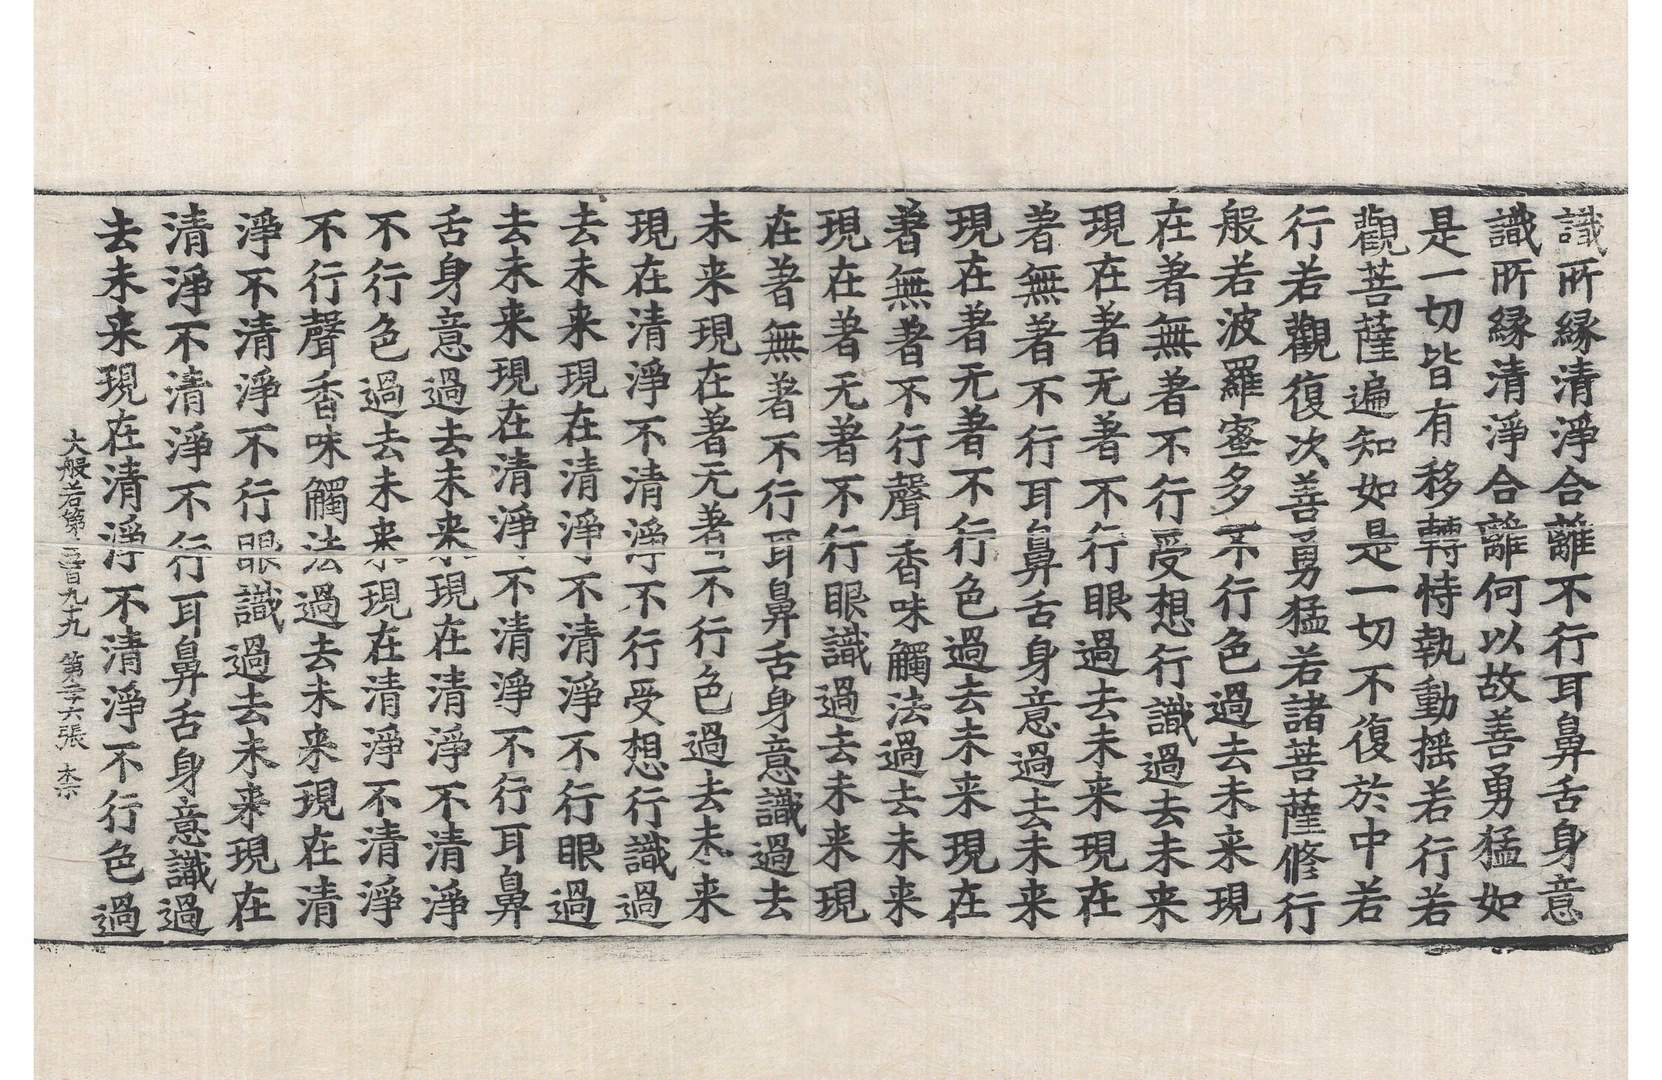 識所縁清淨合離不行耳鼻舌身意
識所縁清淨合離何以故善勇猛如
是一切皆有移轉恃執動摇若行若
觀菩薩遍知如是一切不復於中若
行若觀復次善勇猛若諸菩薩修行
般若波羅蜜多不行色過去未来現
在著無著不行受想行識過去未来
現在著无著不行眼過去未来現在
著無著不行耳鼻舌身意過去未来
現在著无著不行色過去未来現在
著無著不行聲香味觸法過去未来
現在著无著不行眼識過去未来現
在著無著不行耳鼻舌身意識過去
未来現在著无著不行色過去未来
現在清淨不清淨不行受想行識過
去未来現在清淨不清淨不行眼過
去未来現在清淨不清淨不行耳鼻
舌身意過去未来現在清淨不清淨
不行色過去未来現在清淨不清淨
不行聲香味觸法過去未来現在清
淨不清淨不行眼識過去未来現在
清淨不清淨不行耳鼻舌身意識過
去未来現在清淨不清淨不行色過
大般若第五百九十九